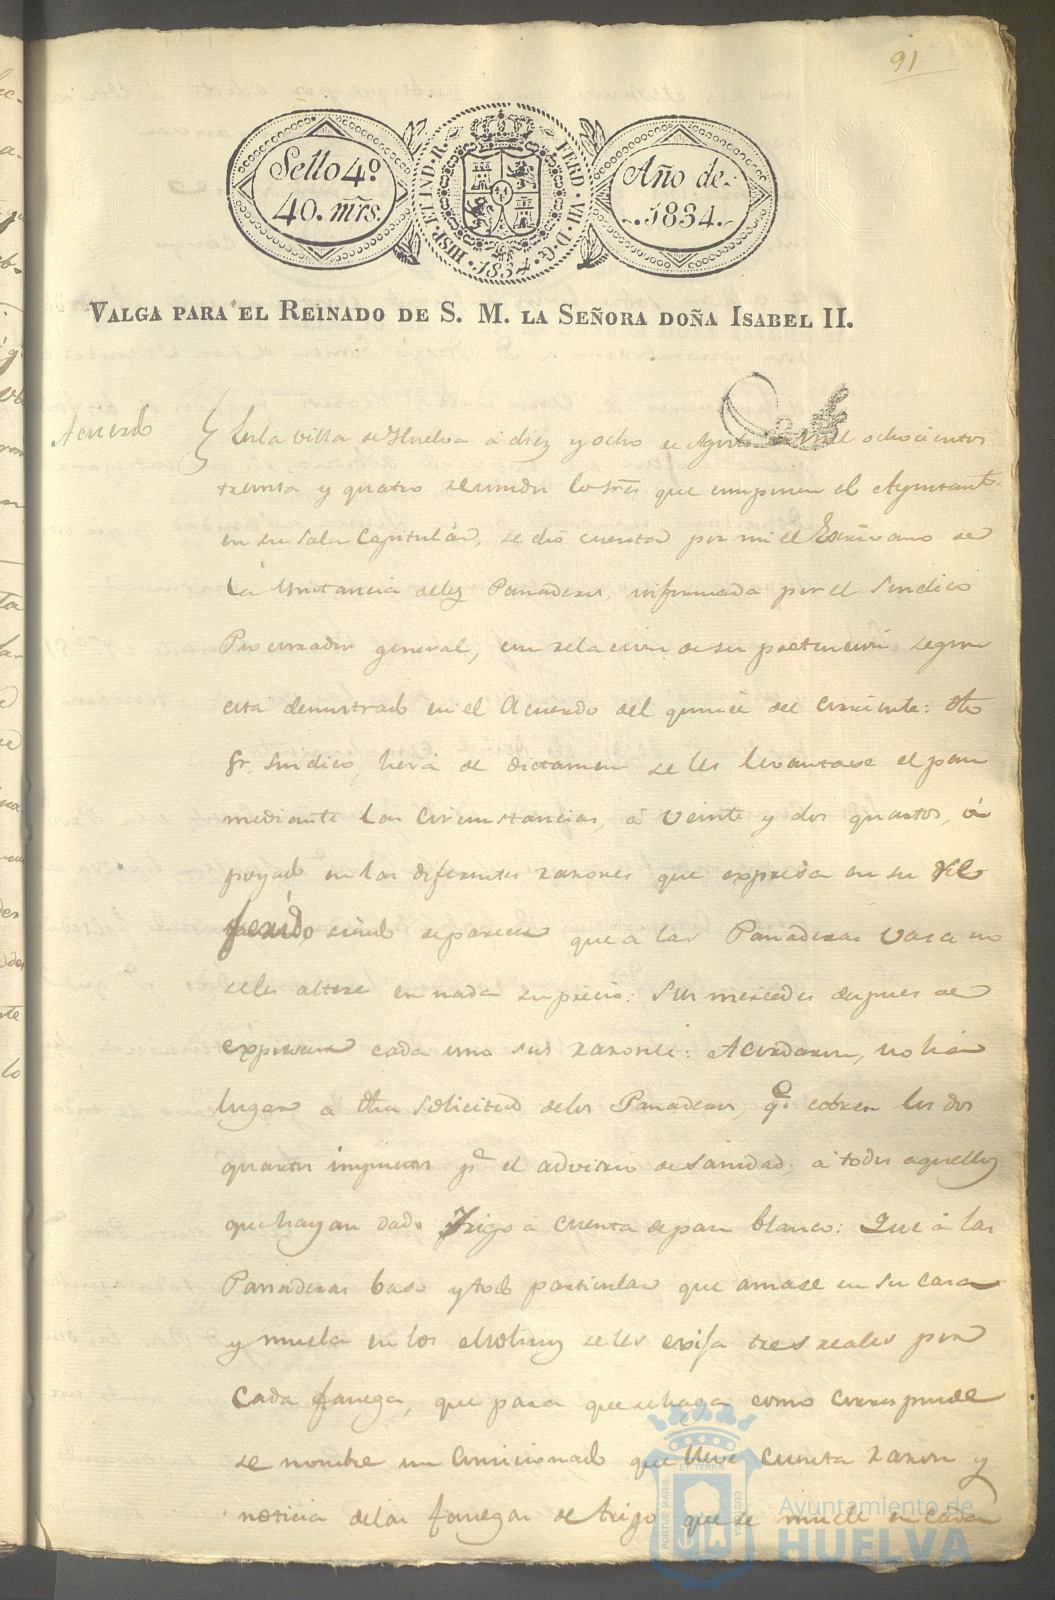 91
Sello 4º
40. mrs.
HISP. ET IND. R. FERD. VII. D. G. 1834.
Año de
1834.
VALGA PARA EL REINADO DE S. M. LA SEÑORA DOÑA ISABEL II.
Acuerdo
En la villa de Huelva á diez y ocho de Agosto de mil ochocientos
treinta y quatro reunidos los Sres que componen el Ayuntamto.
en su Sala Capitulár, se dió cuenta por mi el Escrivano de
la Instancia delos Panaderos, informada por el Sindico
Procurador general, con relacion de su pretencion segun
está demostrado en el Acuerdo del quince del corriente: dho
Sr. Sindico, hera de dictamen se les levantase el pan
mediante las circunstancias, á veinte y dos quartos, á
poyado en las diferentes razones que expresa en su re
ferido siendo de parecer que á las Panaderas basa no
seles altere en nada su precio: Sus mercedes despues de
expresar cada uno sus razones: Acordaron, no há
lugar á dha solicitud delos Panaderos, qe. cobren los dos
quartos impuestos pa el advitrio de Sanidad, á todos aquellos
que hayan dado trigo á cuenta de pan blanco: Que á las
Panaderas baso y todo particular que amase en su casa
y muela en los Molinos se les exija tres reales por
cada fanega, que para que se haga como corresponde
se nombre un Comicionado que lleve cuenta razon y
noticia delas fanegas de trigo que se muele en cada
PORTUS MARIS ET TERRAE CUSTODIA
Ayuntamiento de
HUELVA